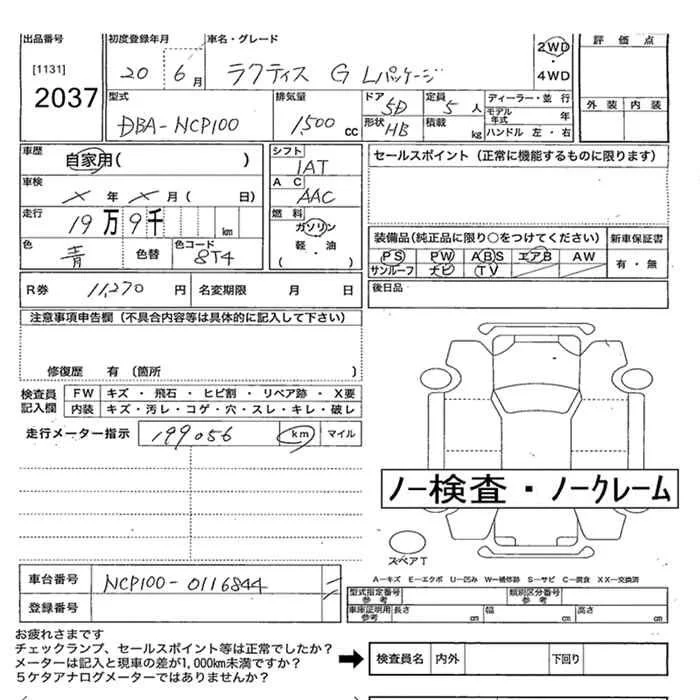 出品番号 初度登録年月 車名・グレード 2WD 評価点
[1131] 20 6月 ラクティス G Lパッケージ 4WD
2037 型式 排気量 ドア 5D 定員 5人 ディーラー・並行 外装 内装
DBA-NCP100 1,500cc 形状 HB 積載 kg モデル年式 年
ハンドル 左・右
車歴 自家用( ) シフト 1AT セールスポイント(正常に機能するものに限ります)
車検 × 年 × 月 ( 日) AC AAC
走行 19万9千 km 燃料 ガソリン 軽・油 ( ・ ) 装備品(純正品に限り○をつけてください) 新車保証書
色 青 色替 色コード 8T4 PS PW ABS エアB AW 有・無
サンルーフ ナビ TV
R券 11,270円 名変期限 月 日 後日品
注意事項申告欄(不具合内容等は具体的に記入して下さい)
修復歴 有 (箇所 )
検査員記入欄 FW キズ・飛石・ヒビ割・リペア跡・X要
内装 キズ・汚レ・コゲ・穴・スレ・キレ・破レ
走行メーター指示 199056 km マイル
ノー検査・ノークレーム
スペアT
A-キズ E-エクボ U-凹み W-補修跡 S-サビ C-腐食 XX-交換済
車台番号 NCP100-0116844 型式指定番号 参考 類別区分番号 参考
登録番号 車庫証明用 参考 長さ cm 幅 cm 高さ cm
お疲れさまです
チェックランプ、セールスポイント等は正常でしたか?
メーターは記入と現車の差が1,000km未満ですか?
5ケタアナログメーターではありませんか?
検査員名 内外 下回り